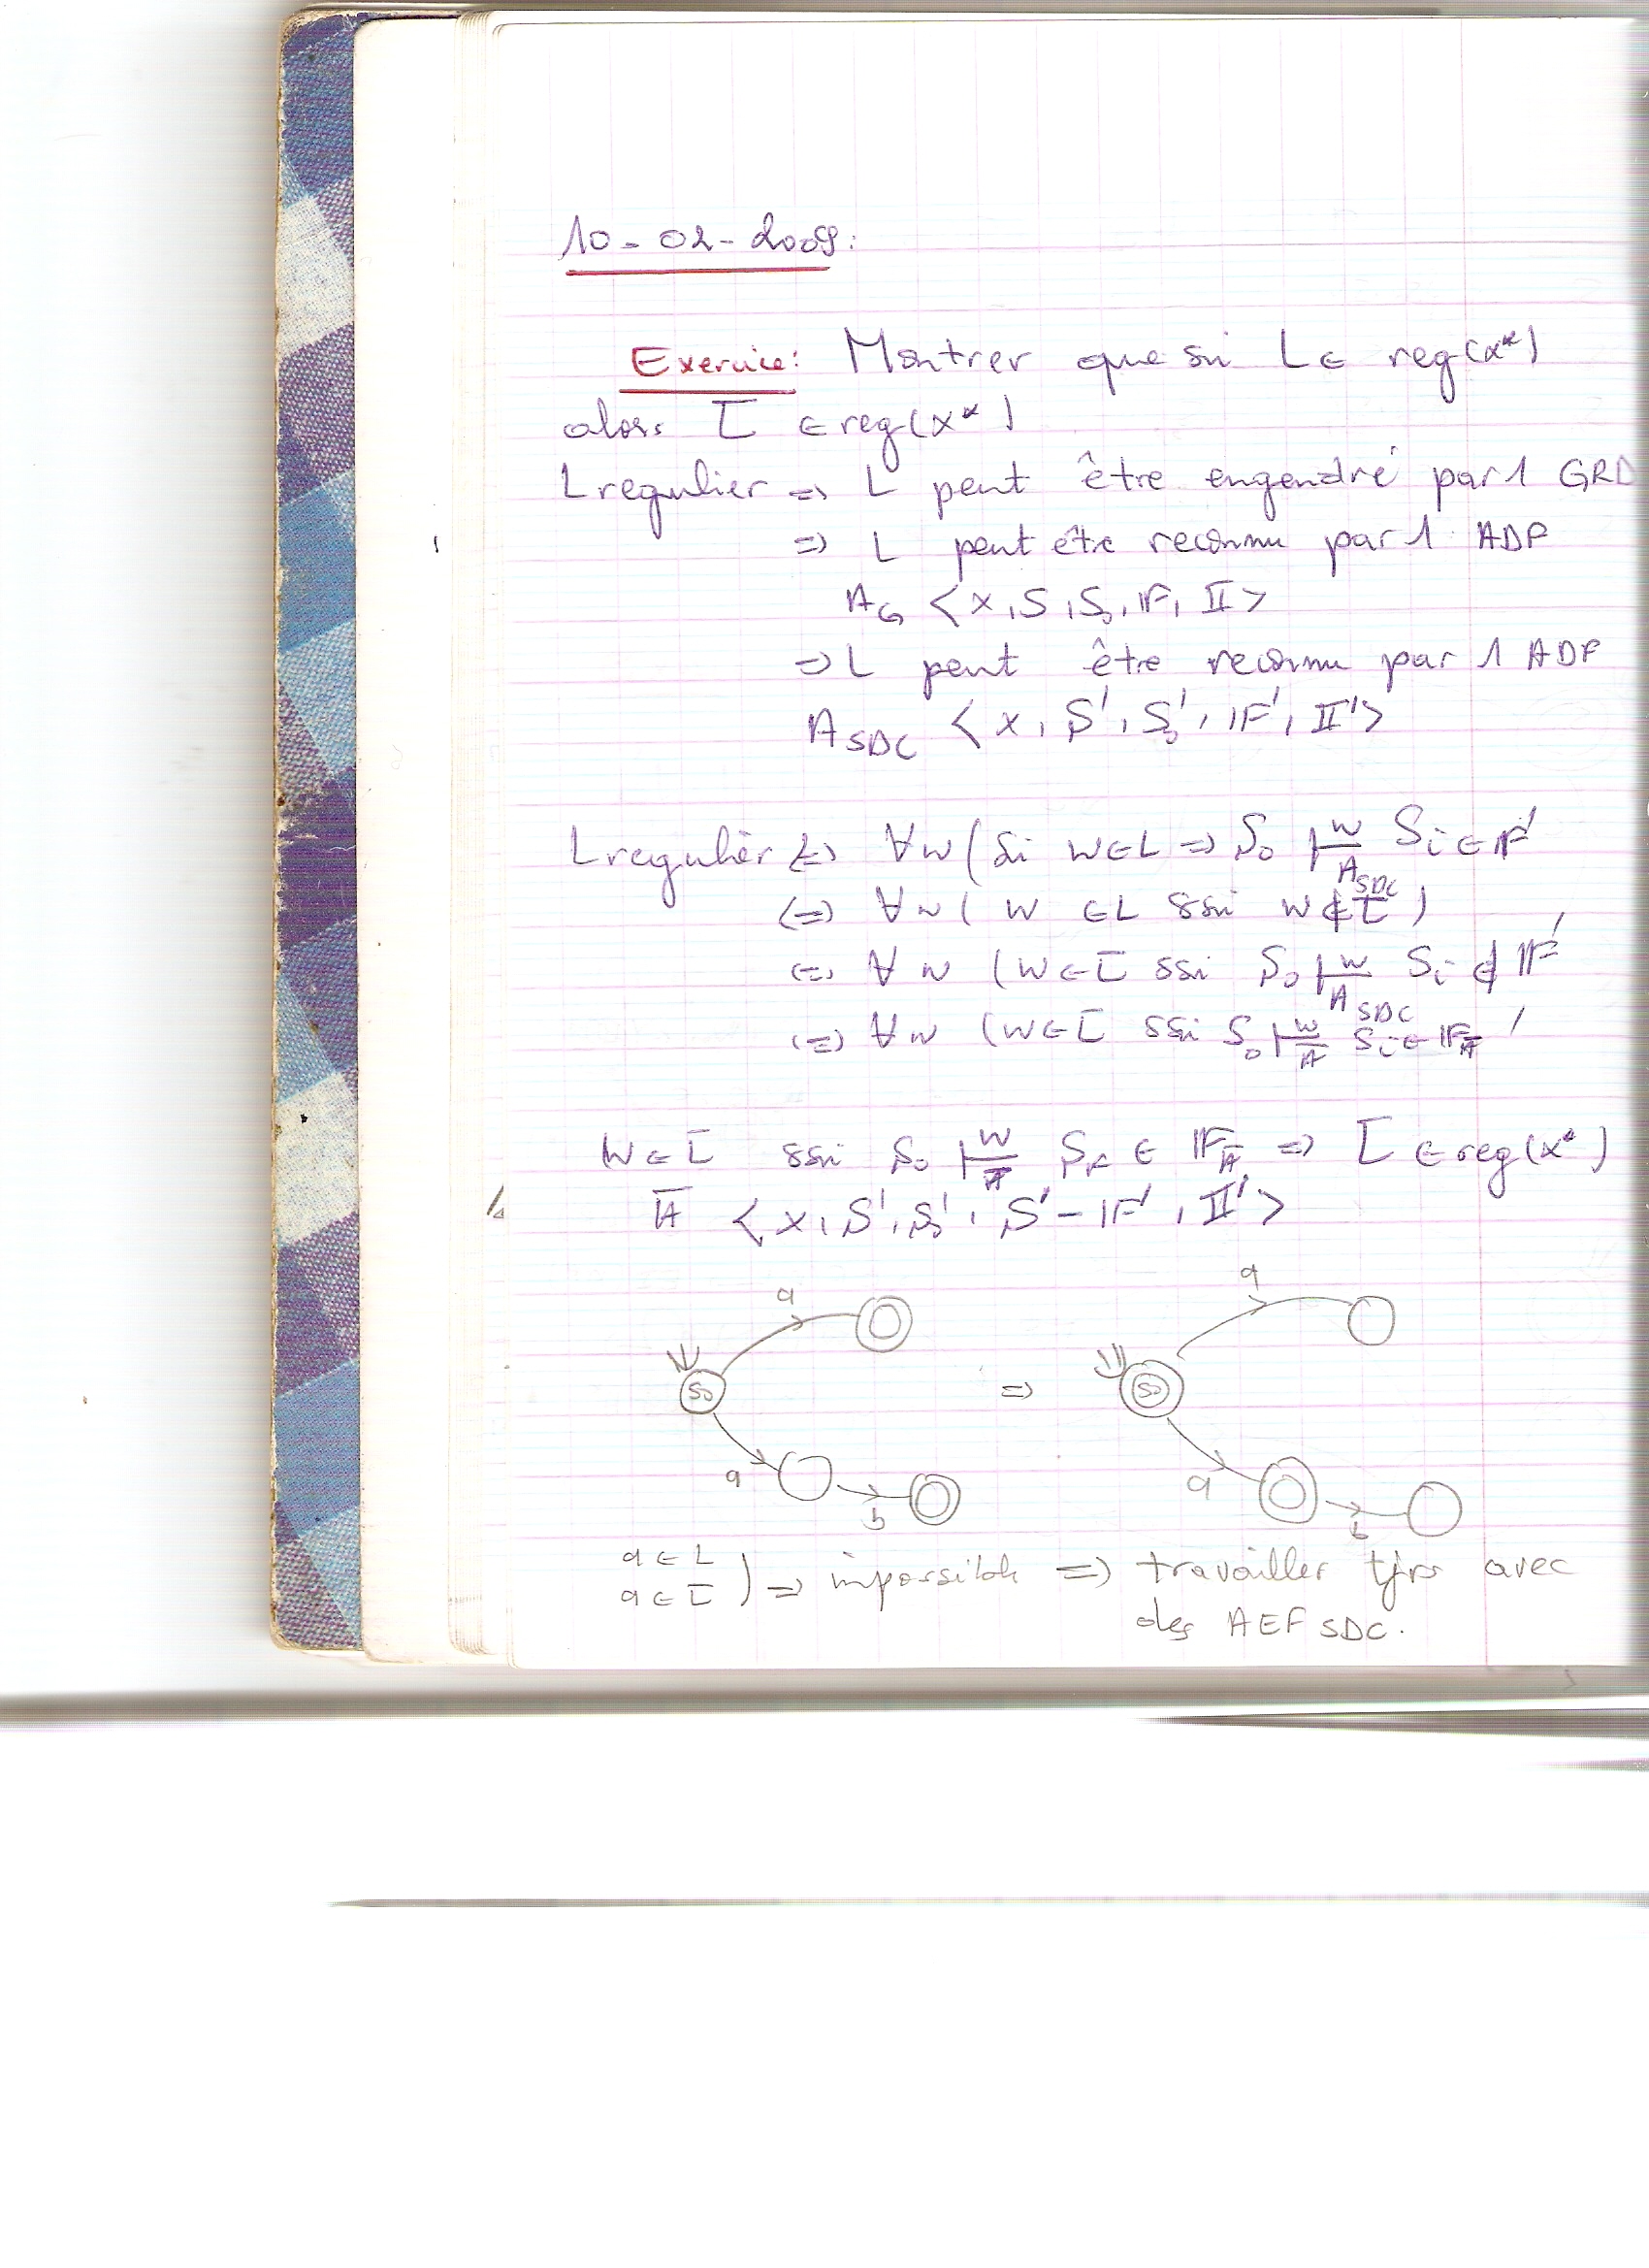 10-02-2009:
Exercice: Montrer que si L ∈ reg(X*)
alors L̅ ∈ reg(X*)
L regulier => L peut être engendré par 1 GRD
=> L peut être reconnu par 1 ADF
A_G <X, S, S₀, F, II>
=> L peut être reconnu par 1 ADF
A_SDC <X, S', S₀', F', II'>
L regulier <=> ∀w (Si w∈L => S₀ |w/A_SDC Si ∈ F'
<=> ∀w ( w ∈ L ssi w ∉ L̅ )
<=> ∀w (w∈L̅ ssi S₀ |w/A_SDC Si ∉ F'
<=> ∀w (w∈L̅ ssi S₀ |w/A̅ Si ∈ F_A̅ '
w∈L̅ ssi S₀ |w/A̅ S_F ∈ F_A̅ => L̅ ∈ reg(X*)
A̅ <X, S', S₀', S'-F', II'>
a a
S₀ => S₀
a b a b
a ∈ L
a ∈ L̅ ) => impossible => travailler tjrs avec
des AEF SDC.